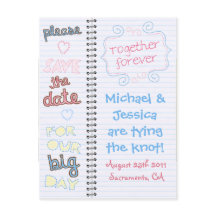 please
SAVE
the
date
FOR
OUR
big
DAY
together
forever
Michael &
Jessica
are tying
the knot!
August 25th 2011
Sacramento, CA